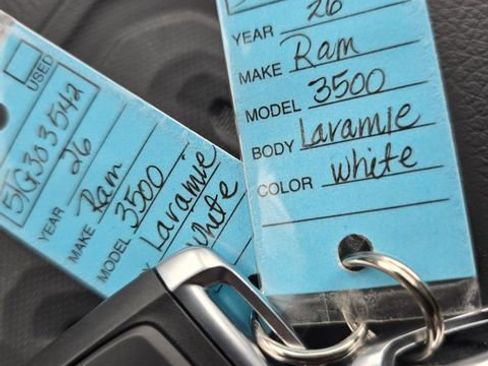 USED
5TG303542
YEAR 26
MAKE Ram
MODEL 3500
Laramie
white
26
YEAR
MAKE Ram
MODEL 3500
BODY Laramie
COLOR white